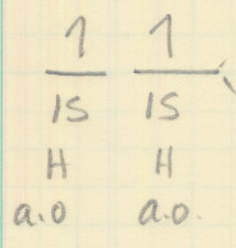 1 1
1s 1s
H H
a.o a.o.